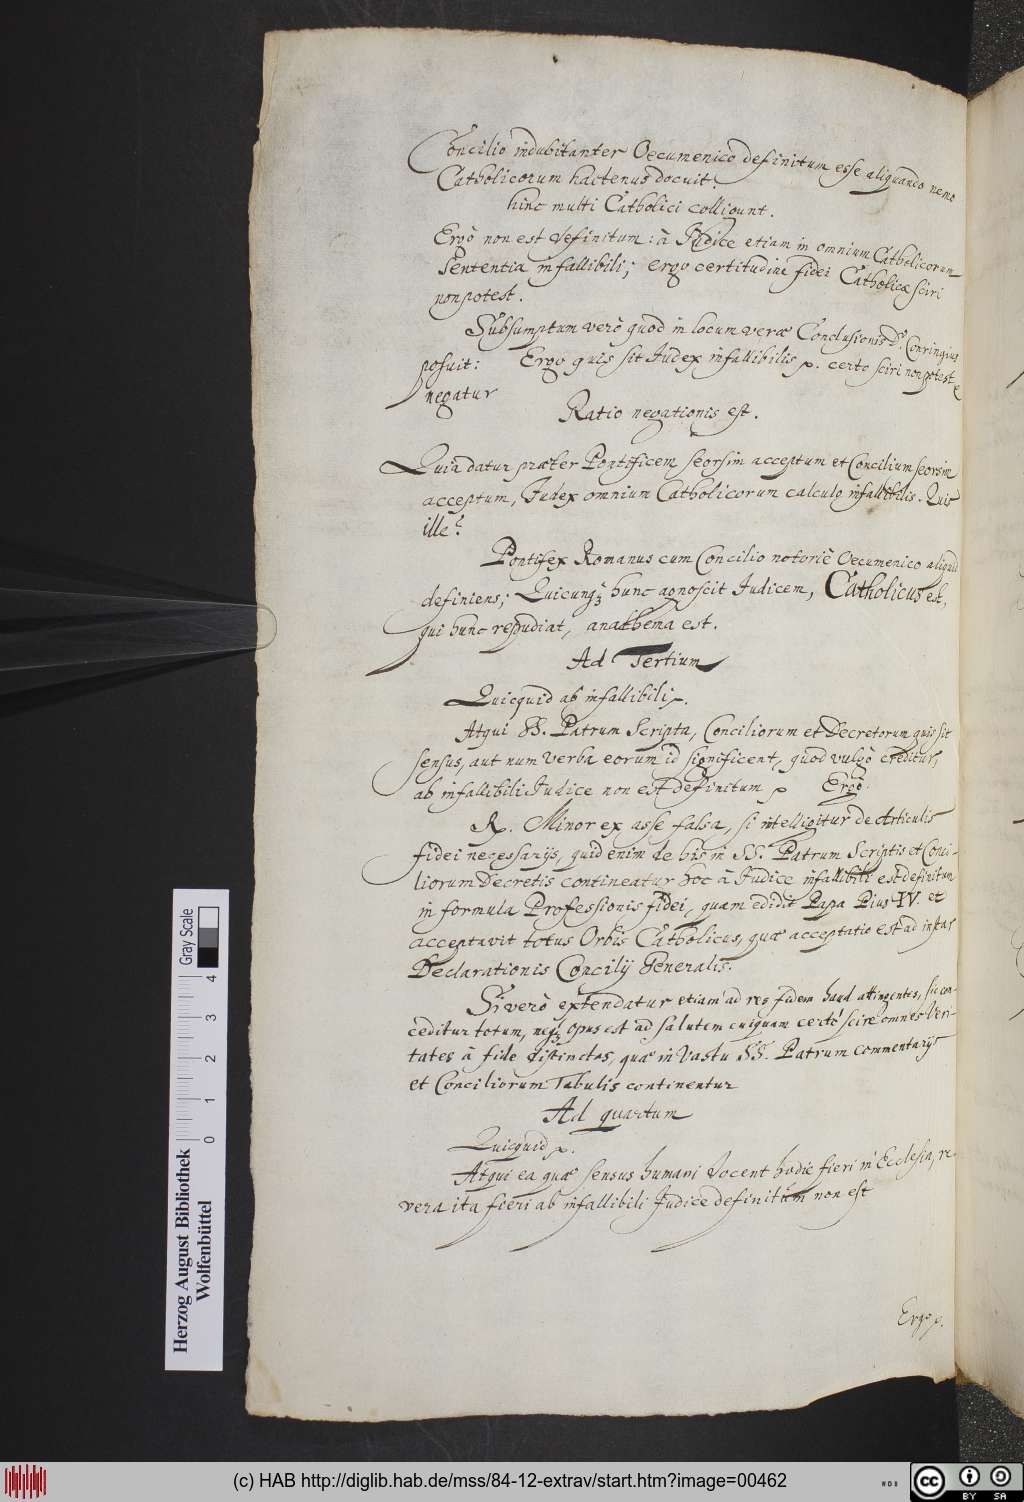 Concilio indubitanter Oecumenico definitum esse aliquando nemo
Catholicorum hactenus docuit.
hinc multi Catholici colligunt.
Ergò non est definitum: à Judice etiam in omnium Catholicorum
sententia infallibili; ergo certitudine fidei Catholicæ sciri
non potest.
Subsumptum verò quod in locum veræ Conclusionis Dn. Conringius
posuit: Ergo quis sit Judex infallibilis p. certo sciri non potest
negatur
Ratio negationis est.
Quia datur præter Pontificem seorsim acceptum et Concilium seorsim
acceptum, Judex omnium Catholicorum calculo infallibilis. Quis
ille?
Pontifex Romanus cum Concilio notoriè Oecumenico aliquid
definiens; Quicunq3 hunc agnoscit Judicem, Catholicus est,
qui hunc repudiat, anathema est.
Ad Tertium
Quicquid ab infallibili p.
Atqui SS. Patrum Scripta, Conciliorum et Decretorum quis sit
sensus, aut num verba eorum id significent, quod vulgò creditur,
ab infallibili Judice non est definitum p Ergò.
R. Minor ex asse falsa, si intelligitur de Articulis
fidei necessarijs, quid enim de his in SS. Patrum Scriptis et Conci-
liorum Decretis contineatur hoc à Judice infallibili est definitum
in formula Professionis fidei, quam edidit Papa Pius IV. et
acceptavit totus Orbis Catholicus, quæ acceptatio est ad instar
Declarationis Concilij Generalis.
Si verò extendatur etiam ad res fidem haud attingentes, sic con-
ceditur totum, neq3 opus est ad salutem cuiquam certò scire omnes Veri-
tates à fide distinctas, quæ in Vastis SS. Patrum commentarijs
et Conciliorum Tabulis continentur
Ad quartum
Quicquid p.
Atqui ea quæ sensus humani docent hodie fieri in Ecclesia, re
vera ita fieri ab infallibili Judice definitum non est
Ergo p.
Herzog August Bibliothek
Wolfenbüttel
0 1 2 3 4
Gray Scale
(c) HAB http://diglib.hab.de/mss/84-12-extrav/start.htm?image=00462
WDB
cc BY SA